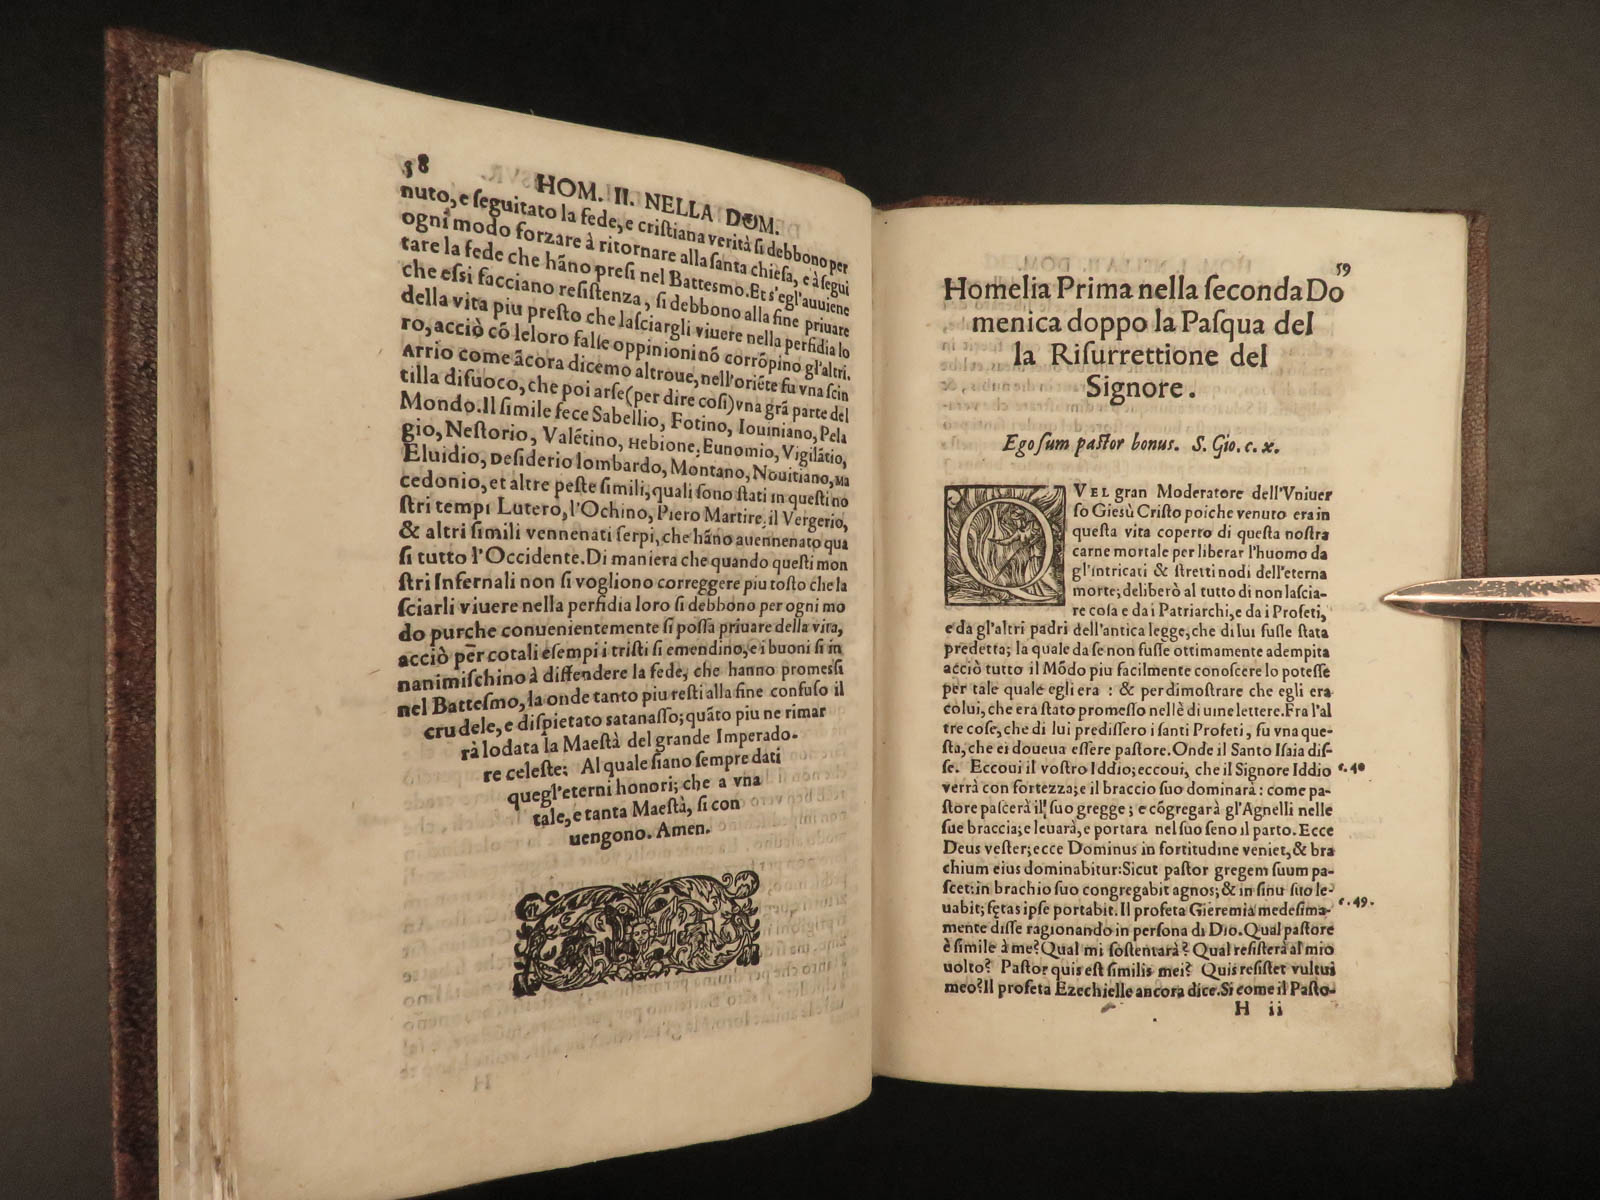 58
HOM. II. NELLA DOM.
nuto, e ſeguitato la fede, e criſtiana verità ſi debbono per
ogni modo forzare à ritornare alla ſanta chieſa, e à ſegui
tare la fede che hãno preſi nel Batteſmo. Et s'egl'auuiene
che eſsi facciano reſiſtenza, ſi debbono alla fine priuare
della vita piu preſto che laſciargli viuere nella perfidia lo
ro, acciò cõ leloro falſe oppinioni nõ corrõpino gl'altri.
Arrio come ãcora dicemo altroue, nell'oriẽte fu vna ſcin
tilla difuoco, che poi arſe (per dire coſi) vna grã parte del
Mondo. Il ſimile fece Sabellio, Fotino, Iouiniano, Pela
gio, Neſtorio, Valẽtino, Hebione, Eunomio, Vigilãtio,
Eluidio, Deſiderio lombardo, Montano, Nouitiano, Ma
cedonio, et altre peſte ſimili, quali ſono ſtati in queſti no
ſtri tempi Lutero, l'Ochino, Piero Martire, il Vergerio,
& altri ſimili vennenati ſerpi, che hãno auennenato qua
ſi tutto l'Occidente. Di maniera che quando queſti mon
ſtri Infernali non ſi vogliono correggere piu toſto che la
ſciarli viuere nella perfidia loro ſi debbono per ogni mo
do purche conuenientemente ſi poſſa priuare della vita,
acciò per̃ cotali eſempi i triſti ſi emendino, e i buoni ſi in
nanimiſchino à diffendere la fede, che hanno promeſsi
nel Batteſmo, la onde tanto piu reſti alla fine confuſo il
crudele, e diſpietato satanaſſo; quãto piu ne rimar
rà lodata la Maeſtà del grande Imperado-
re celeſte: Al quale ſiano ſempre dati
quegl'eterni honori; che a vna
tale, e tanta Maeſtà, ſi con
uengono. Amen.
59
Homelia Prima nella ſeconda Do
menica doppo la Paſqua del
la Riſurrettione del
Signore.
Ego ſum paſtor bonus. S. Gio. c. x.
QVEL gran Moderatore dell'Vniuer
ſo Gieſù Criſto poiche venuto era in
queſta vita coperto di queſta noſtra
carne mortale per liberar l'huomo da
gl'intricati & ſtretti nodi dell'eterna
morte; deliberò al tutto di non laſcia-
re coſa e da i Patriarchi, e da i Profeti,
e da gl'altri padri dell'antica legge, che di lui fuſſe ſtata
predetta; la quale da ſe non fuſſe ottimamente adempita
acciò tutto il Mõdo piu facilmente conoſcere lo poteſſe
per tale quale egli era : & per dimoſtrare che egli era
colui, che era ſtato promeſſo nelle di uine lettere. Fra l'al
tre coſe, che di lui prediſſero i ſanti Profeti, fu vna que-
ſta, che ei doueua eſſere paſtore. Onde il Santo Iſaia diſ-
ſe. Eccoui il voſtro Iddio; eccoui, che il Signore Iddio c. 40
verrà con fortezza; e il braccio ſuo dominarà : come pa-
ſtore paſcerà il ſuo gregge ; e cõgregarà gl'Agnelli nelle
ſue braccia; e leuarà, e portara nel ſuo ſeno il parto. Ecce
Deus veſter; ecce Dominus in fortitudine veniet, & bra
chium eius dominabitur: Sicut paſtor gregem ſuum pa-
ſcet: in brachio ſuo congregabit agnos; & in ſinu ſuo le-
uabit; fętas ipſe portabit. Il profeta Gieremia medeſima- c. 49.
mente diſſe ragionando in perſona di Dio. Qual paſtore
è ſimile à me? Qual mi ſoſtentarà? Qual reſiſterà al mio
uolto? Paſtor quis eſt ſimilis mei? Quis reſiſtet vultui
meo? Il profeta Ezechielle ancora dice. Si come il Paſto-
H ii